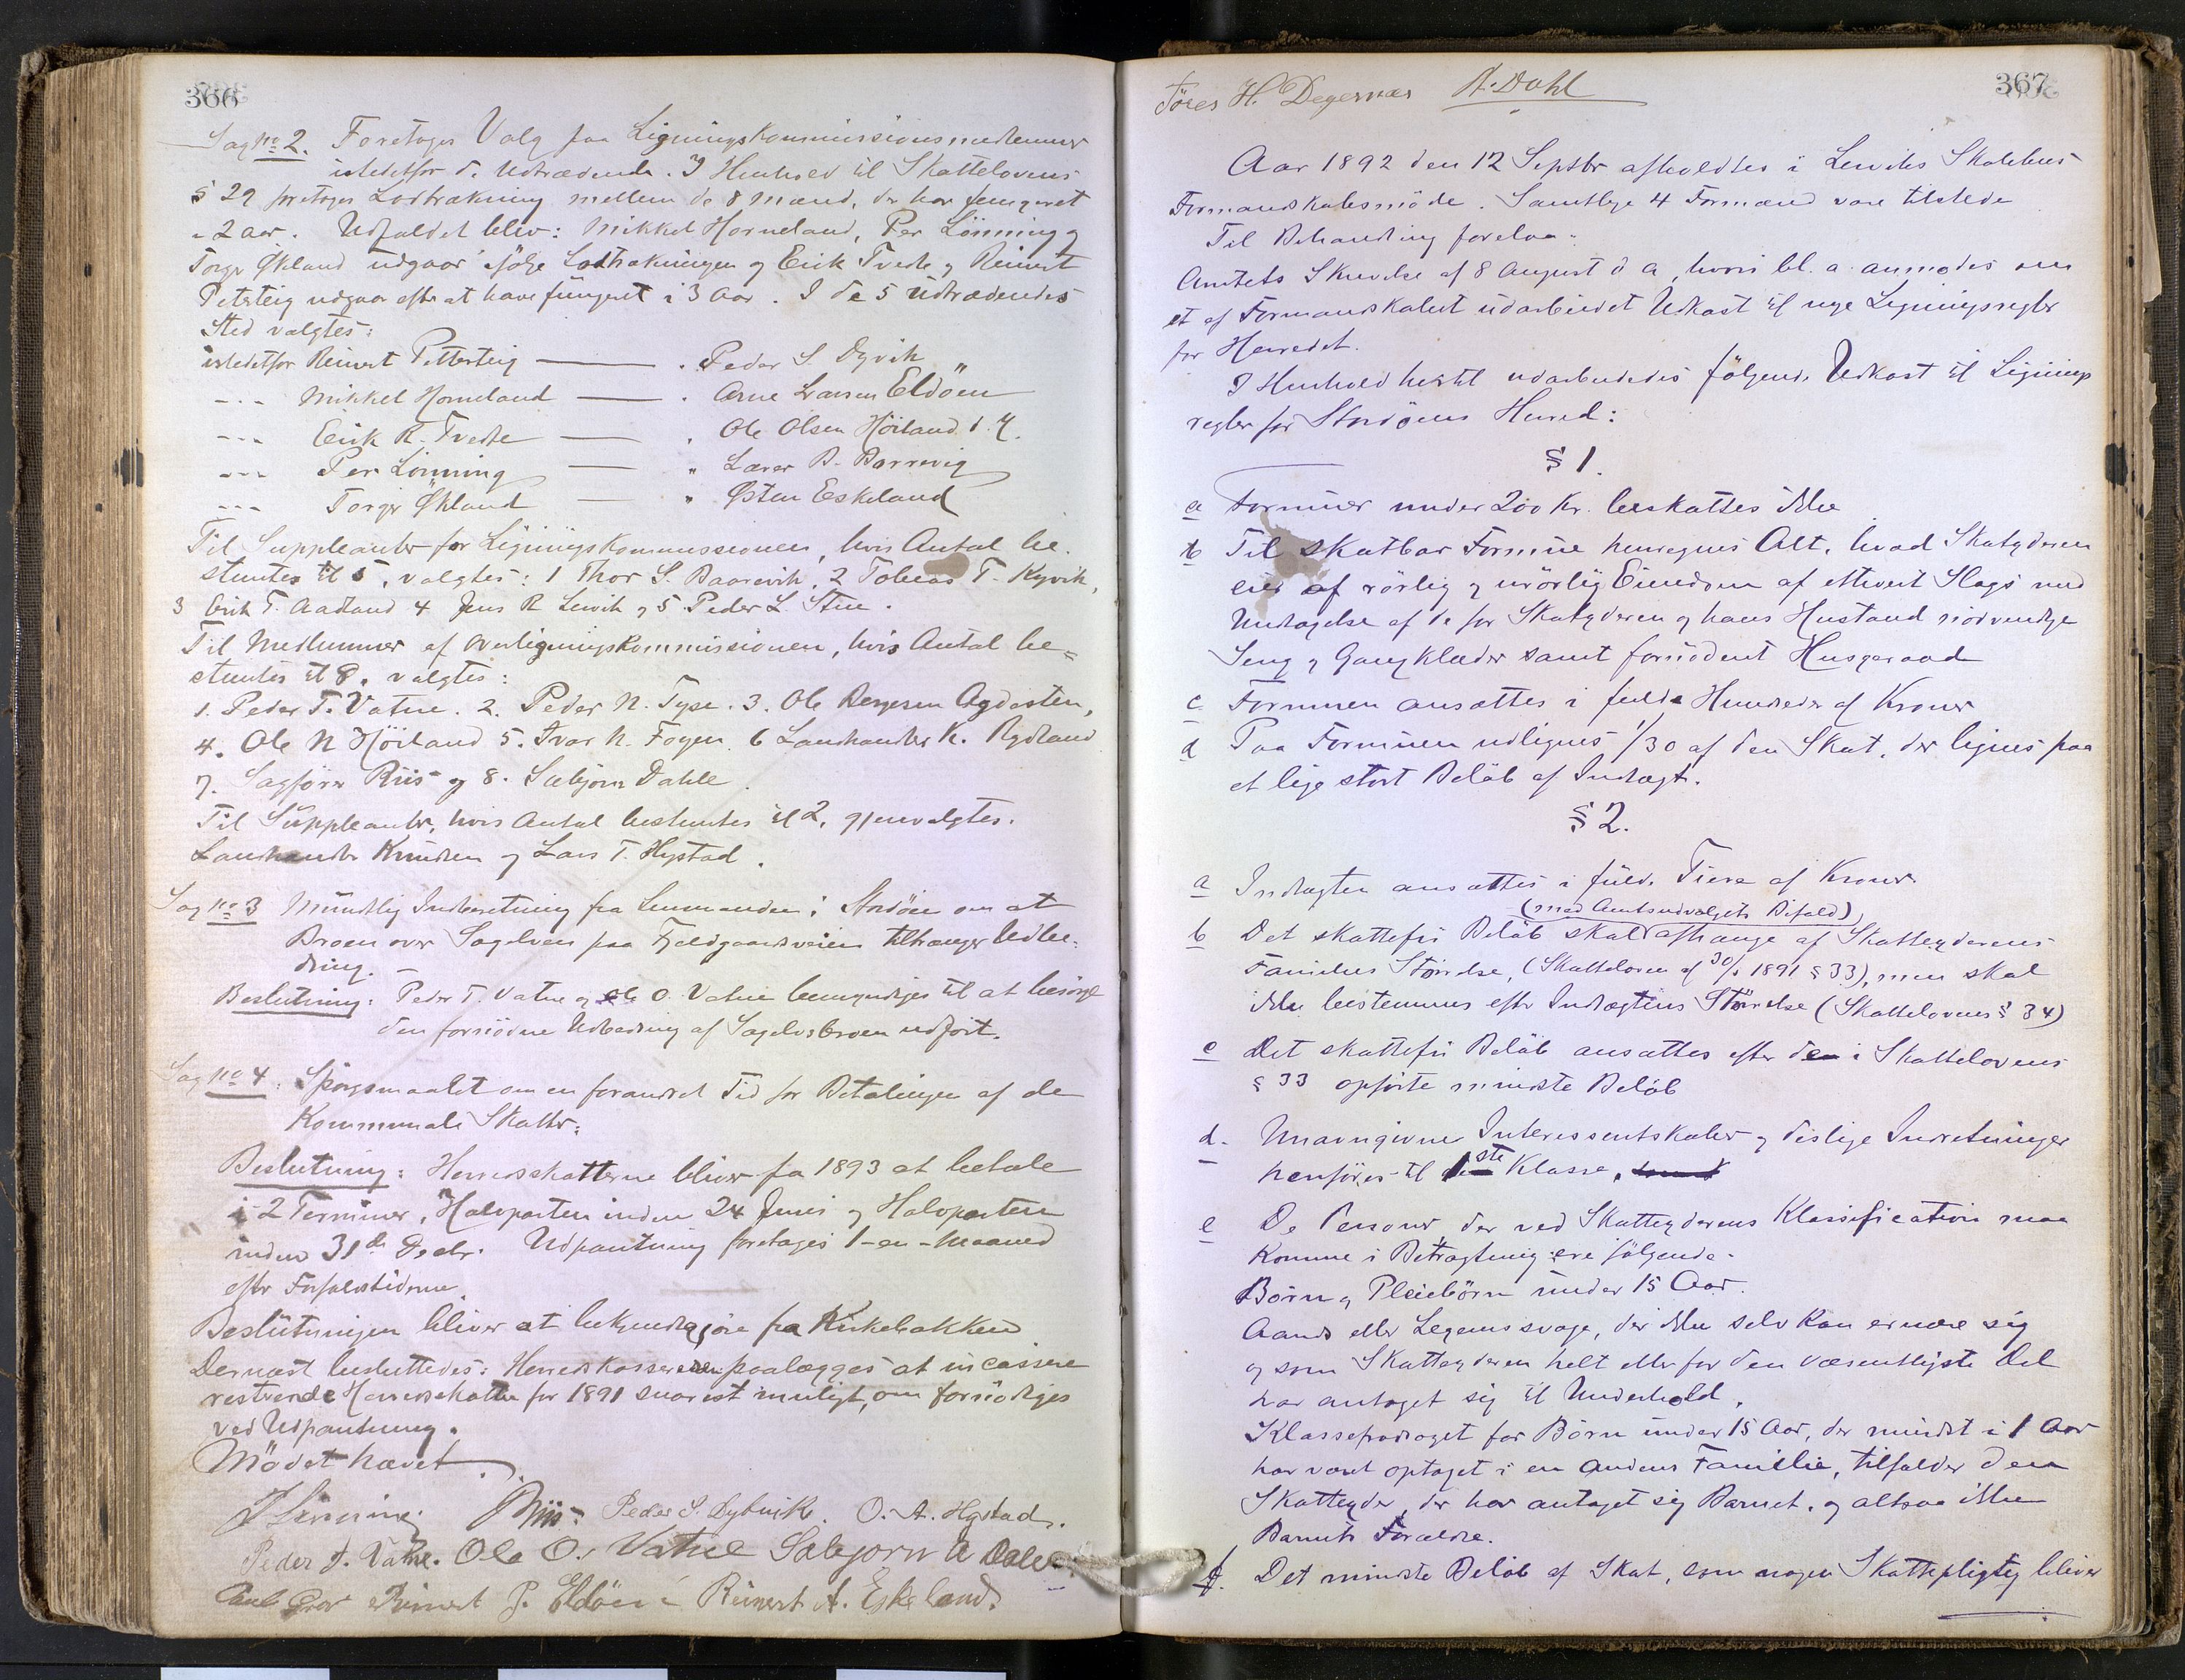 366
Sag no 2. Foretoges Valg paa Ligningskommissionsmedlemmer
istedetfor d. Udtrædende. I Henhold til Skattelovens
§ 29 foretoges Lodtrækning mellem de 8 Mænd, der har fungeret
i 2 aar. Udfaldet blev: Mikkel Horneland, Per Lönning og
Torger Økland udgaar ifølge Lodtrækningen og Erik Tvedte og Reinert
Petersteig udgaar efter at have fungeret i 3 Aar. I de 5 Udtrædendes
Sted valgtes:
istedetfor Reinert Pettersteig — . Peder S. Dyvik
- - - Mikkel Horneland — . Arne Larsen Eldöen
- - - Erik R. Tvedte — . Ole Olsen Höiland d. Y.
- - - Per Lönning — " Lærer B. Barrevig
- - - Torger Økland — " Østen Eskeland
Til Suppleanter for Ligningskommissionen, hvis Antal be-
stemtes til 5, valgtes: 1 Thor S. Baarevik, 2 Tobias T. Kyvik,
3 Erik T. Aadland 4 Jens R Leivik og 5 Peder L. Stue.
Til Medlemmer af Overligningskommissionen, hvis Antal be=
stemtes til 8, valgtes:
1. Peder T. Vatne. 2. Peder N. Tyse. 3. Ole Bergesen Agdesten,
4. Ole N Höiland 5. Ivar N. Foyen. 6 Landhandler K. Rydland
7. Sagfører Riis og 8. Sæbjörn Dahle.
Til Suppleanter, hvis Antal bestemtes til 2, gjenvalgtes.
Landhandler Knudsen og Lars T. Hystad.
Sag no 3 Mundtlig Indberetning fra Lensmanden i Stordöen om at
Broen over Sagelven paa Fjeldgaardsveien tiltrænger Udbe-
dring.
Beslutning: Peder T. Vatne og Ole O. Vatne bemyndiges til at besörge
den fornödne Udbedring af Sagelvsbroen udfört.
Sag no 4. Spörgsmaalet om en forandret Tid for Betalingen af de
Kommunale Skatter.
Beslutning: Herredsskatterne bliver fra 1893 at betale
i 2 Terminer, Halvparten inden 24 Juni og Halvparten
inden 31te Decbr. Udpantning foretages 1-en-Maaned
efter Forfaldstiderne.
Beslutningen bliver at bekjendtgjöre fra Kirkebakken.
Dernæst besluttedes: Herredskassereren paalægges at incassere
resterende Herredsskatter for 1891 snarest muligt, om fornödiges
ved Udpantning.
Mödet hævet.
P Lönning Riis Peder S. Dybvik. O. A. Hystad.
Peder T. Vatne. Ole O. Vatne Sæbjørn A Dale
Reinert J. Eldöen Reinert A. Eskeland.
367
Töres H. Degernæs A. Dahl
Aar 1892 den 12 Septbr afholdtes i Lerviks Skolehus
Formandskabsmöde. Samtlige 4 Formænd vare tilstede
Til Behandling forelaa:
Amtets Skrivelse af 8 August d a, hvori bl. a. anmodes om
et af Formandskabet udarbeidet Udkast til nye Ligningsregler
for Herredet.
I Henhold hertil udarbeidedes fölgende Udkast til Lignings
regler for Stordöens Herred:
§ 1.
a Formuer under 200 Kr. beskattes ikke
b Til skatbar Formue henregnes Alt, hvad Skatyderen
eier af rörlig og urörlig Eiendom af ethvert Slags med
Undtagelse af de for Skatyderen og hans Husstand nödvendige
Seng og Gangklæder samt fornödent Husgeraad
c Formuen ansættes i fulde Hundreder af Kroner
d Paa Formuen udlignes 1/30 af den Skat, der lignes paa
et lige stort Belöb af Indtægt.
§ 2.
a Indtægten ansættes i fulde Tiere af Kroner
(med Amtsudvalgets Bifald)
b Det skattefri Belöb skal afhænge af Skatteyderens
Families Størrelse, (Skatteloven af 30/ 1891 § 33), men skal
ikke bestemmes efter Indtægtens Störrelse (Skattelovens § 34)
c Det skattefri Belöb ansættes efter de i Skattelovens
§ 33 opförte mindste Belöb
d. Unavngivne Interessentskaber og deslige Indretninger
henföres til 1ste Klasse.
e De Personer, der ved Skatteyderens Klassification maa
komme i Betragtning ere fölgende.
Börn og Pleiebörn under 15 Aar.
Aands eller Legemssvage, der ikke selv kan ernære sig
og som Skatteyderen helt eller for den væsentligste Del
har antaget sig til Underhold.
Klassefradraget for Börn under 15 Aar, der mindst i 1 Aar
har været optaget i en andens Familie, tilfalder den
Skatteyder, der har antaget sig Barnet, og altsaa ikke
Barnets Forældre.
f. Det mindste Belöb af Skat, som nogen Skattepligtig bliver